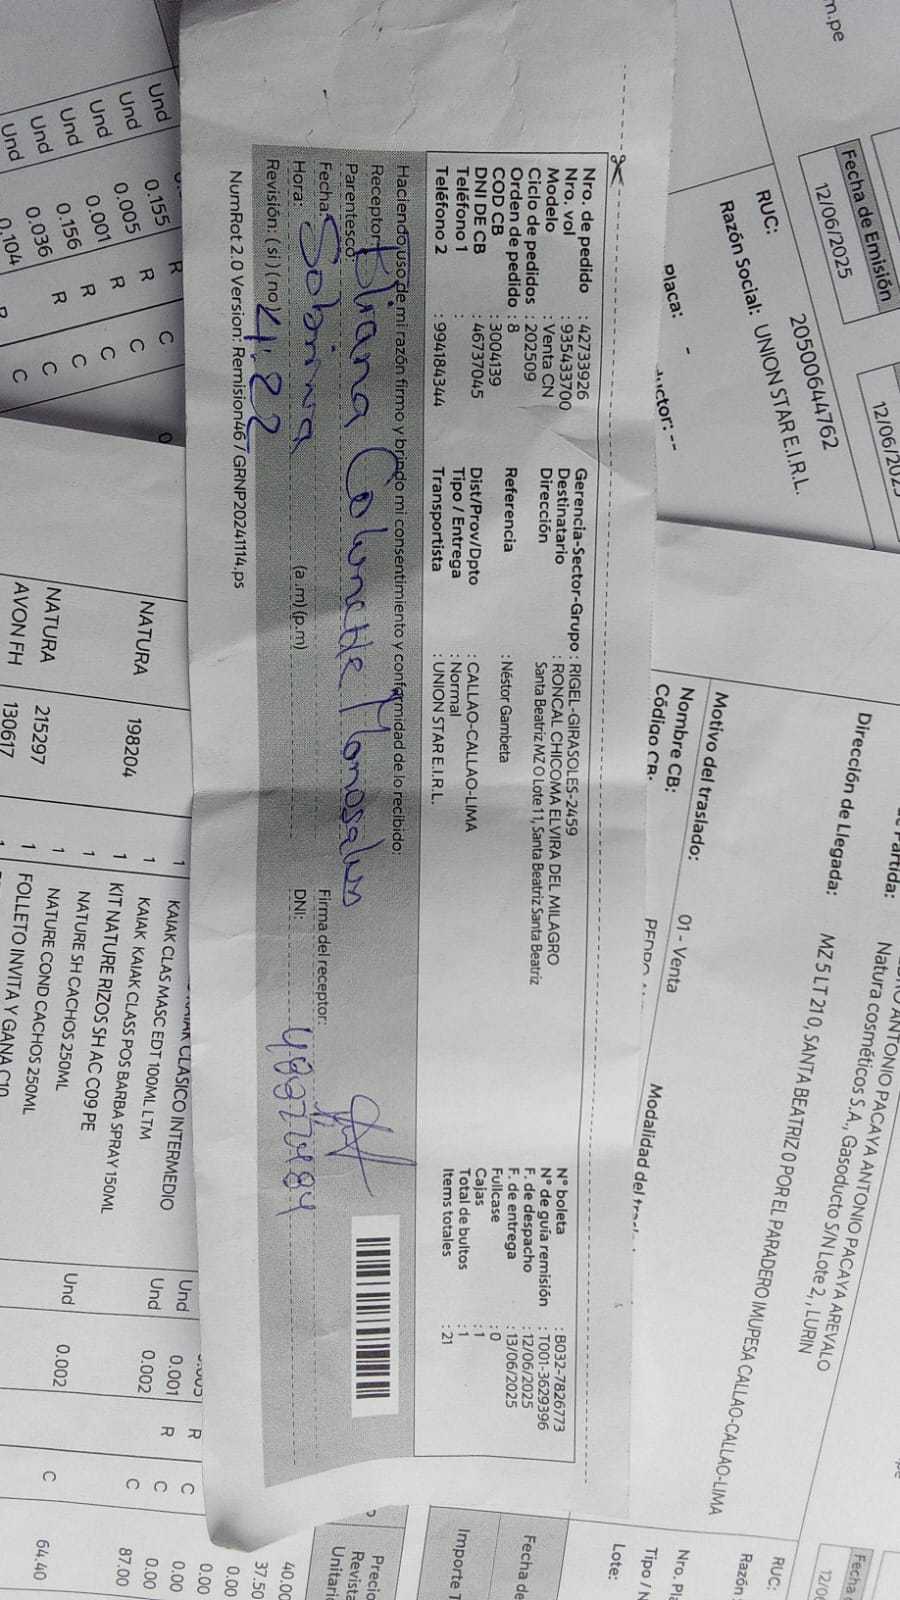 Nro. de pedido : 42733926
Nro. vol : 935433700
Modelo : Venta CN
Ciclo de pedidos : 202509
Orden de pedido : 8
COD CB : 3004139
DNI DE CB : 46737045
Teléfono 1 :
Teléfono 2 : 994184344
Gerencia-Sector-Grupo : RIGEL-GIRASOLES-2459
Destinatario : RONCAL CHICOMA ELVIRA DEL MILAGRO
Dirección : Santa Beatriz MZ O Lote 11, Santa Beatriz Santa Beatriz
Referencia : Néstor Gambeta
Dist/Prov/Dpto : CALLAO-CALLAO-LIMA
Tipo / Entrega : Normal
Transportista : UNION STAR E.I.R.L.
N° boleta : B032-7826773
N° de guia remisión : T001-3629396
F. de despacho : 12/06/2025
F. de entrega : 13/06/2025
Fullcase : 0
Cajas : 1
Total de bultos : 1
Items totales : 21
Haciendo uso de mi razón firmo y brindo mi consentimiento y conformidad de lo recibido:
Receptor:
Parentesco:
Fecha: Sobrina
Hora: (a.m) (p.m)
Revisión: (si) (no) 4:22
Firma del receptor:
DNI:
NumRot 2.0 Version: Remision46 / GRNP20241114.ps
m.pe
Fecha de Emisión
12/06/2025
RUC: 20500644762
Razón Social: UNION STAR E.I.R.L.
Placa: -
Dirección de Llegada: MZ 5 LT 210, SANTA BEATRIZ 0 POR EL PARADERO IMUPESA CALLAO-CALLAO-LIMA
Natura cosméticos S.A., Gasoducto S/N Lote 2, , LURIN
ANTONIO PACAYA ANTONIO PACAYA AREVALO
Motivo del traslado: 01 - Venta
Nombre CB:
Código CB:
RUC:
Lote:
Und 0.155 R C
Und 0.005 R C
Und 0.001 R C
Und 0.156 R C
Und 0.036
Und 0.104
KAIAK CLASICO INTERMEDIO
1 KAIAK CLAS MASC EDT 100ML LTM Und 0.001 R C 0.00
1 KAIAK KAIAK CLASS POS BARBA SPRAY 150ML Und 0.002 R C 0.00
NATURA 198204 1 KIT NATURE RIZOS SH AC C09 PE C 87.00
1 NATURE SH CACHOS 250ML
1 NATURE COND CACHOS 250ML Und 0.002
NATURA 215297 1 FOLLETO INVITA Y GANA C10 C 64.40
AVON FH 130617 1
40.00
37.50
0.00
0.00